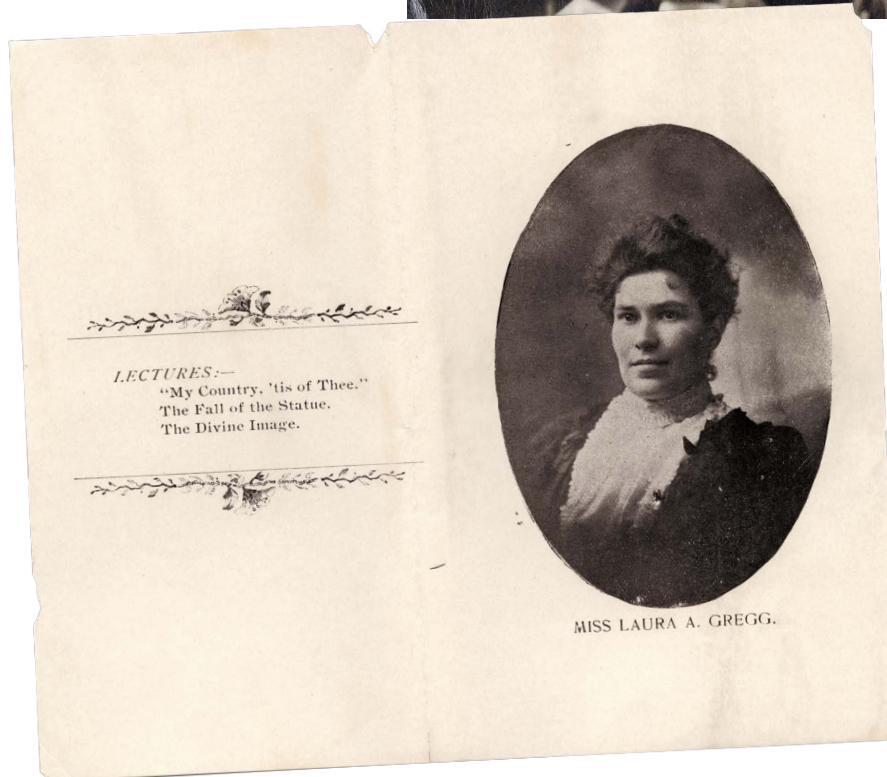 LECTURES:—
"My Country, 'tis of Thee."
The Fall of the Statue.
The Divine Image.
MISS LAURA A. GREGG.